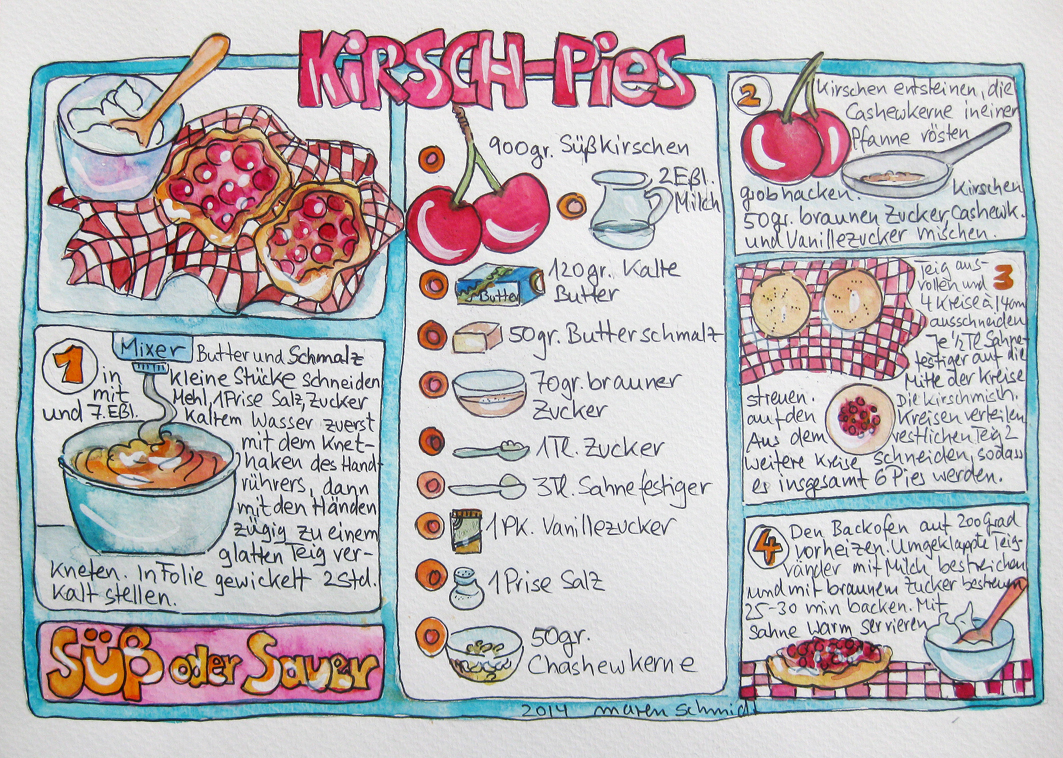 KIRSCH-PIES
1
Mixer
Butter und Schmalz
in kleine Stücke schneiden
mit Mehl, 1Prise Salz, Zucker
und 7.Eßl. kaltem Wasser zuerst
mit dem Knet-
haken des Hand-
rührers, dann
mit den Händen
zügig zu einem
glatten Teig ver-
kneten. In Folie gewickelt 2 Std.
kalt stellen.
Süß oder Sauer
900gr. Süßkirschen
2Eßl.
Milch
120gr. Kalte
Butter
Butter
50gr. Butterschmalz
70gr. brauner
Zucker
1Tl. Zucker
3Tl. Sahnefestiger
1Pk. Vanillezucker
1Prise Salz
50gr.
Chashewkerne
2014 maren schmidt
2
Kirschen entsteinen, die
Cashewkerne in einer
Pfanne rösten
grobhacken. Kirschen
50gr. braunen Zucker, Cashewk.
und Vanillezucker mischen.
3
Teig aus-
rollen und
4 Kreise à 14cm
ausschneiden
Je ½ Tl Sahne-
festiger auf die
Mitte der Kreise
streuen. Die Kirschmisch.
auf den Kreisen verteilen
Aus dem restlichen Teig 2
weitere Kreise schneiden, sodass
es insgesamt 6 Pies werden.
4
Den Backofen auf 200 Grad
vorheizen. Umgeklappte Teig-
ränder mit Milch bestreichen
und mit braunem Zucker bestreuen
25-30 min backen. Mit
Sahne warm servieren